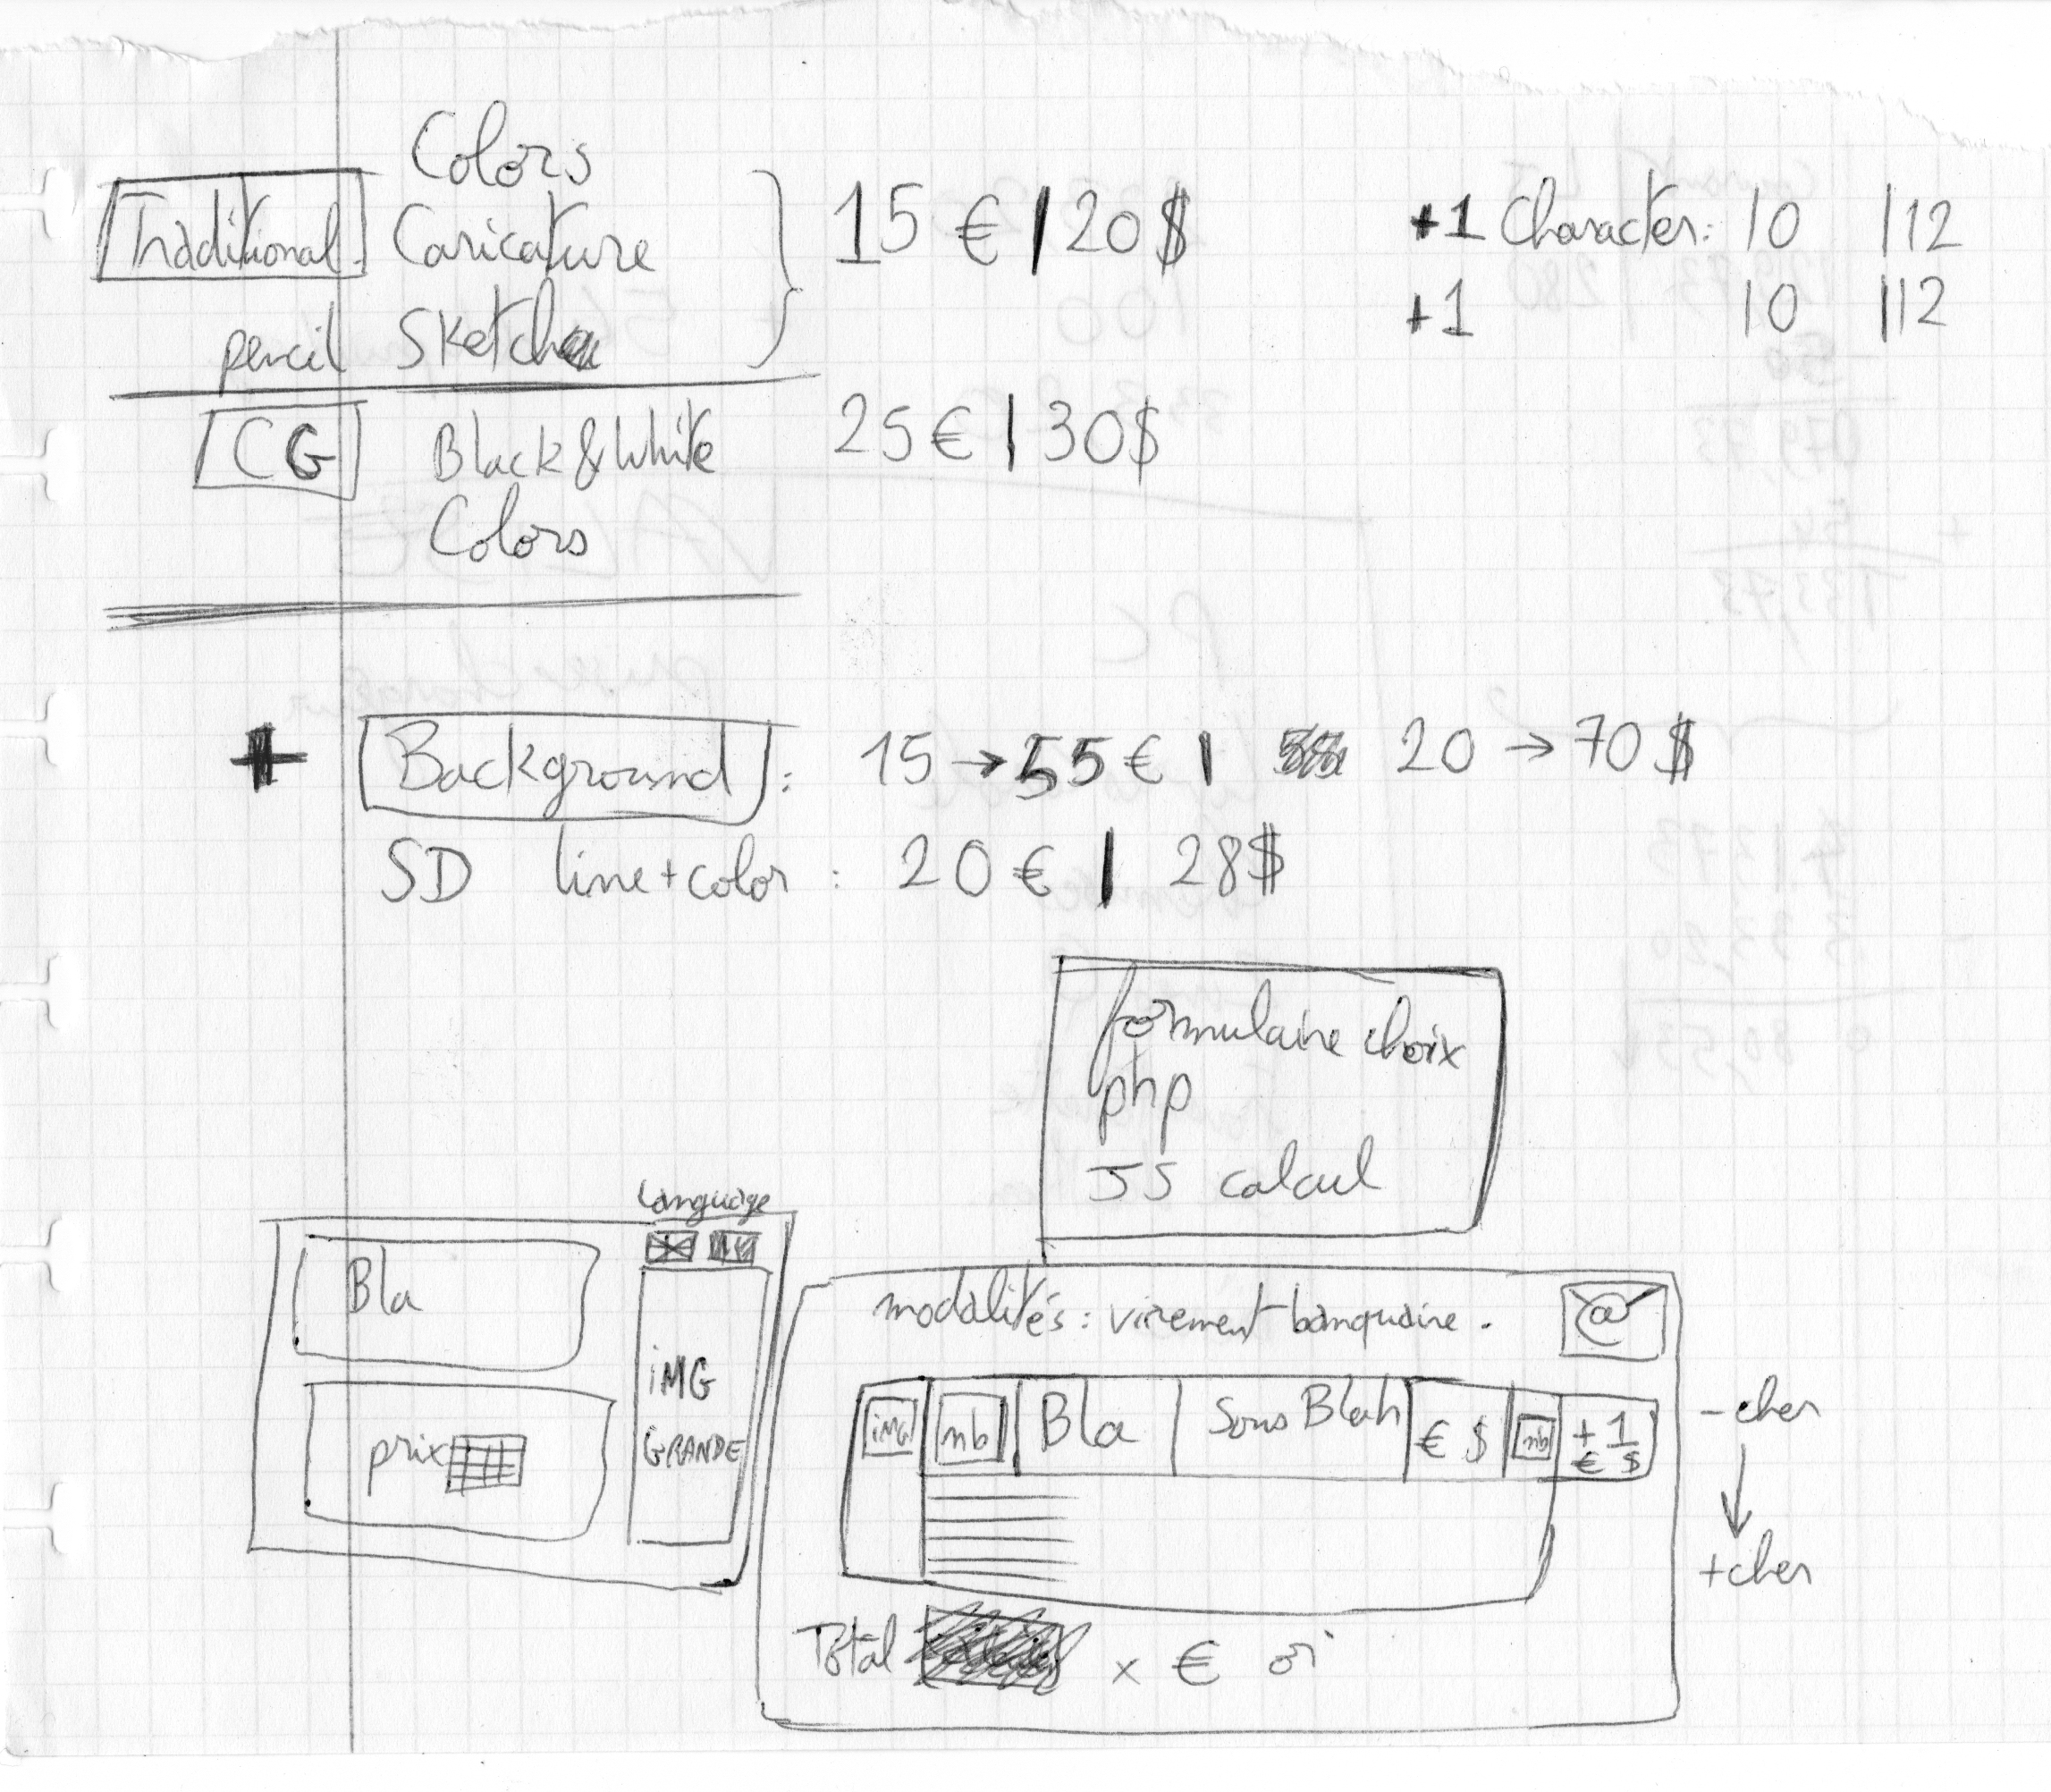 Colors
Traditional. Caricature 15 € | 20 $ +1 Character: 10 | 12
pencil Sketch +1 10 | 12
CG Black & White 25 € | 30 $
Colors
+ Background : 15 → 55 € | 20 → 70 $
SD line + color : 20 € | 28 $
formulaire choix
php
JS calcul
Language
Bla
iMG
GRANDE
prix
modalités : virement banquaire . @
iMG nb Bla Sous Blah € $ nb + 1 € $
- cher
+ cher
Total x € or